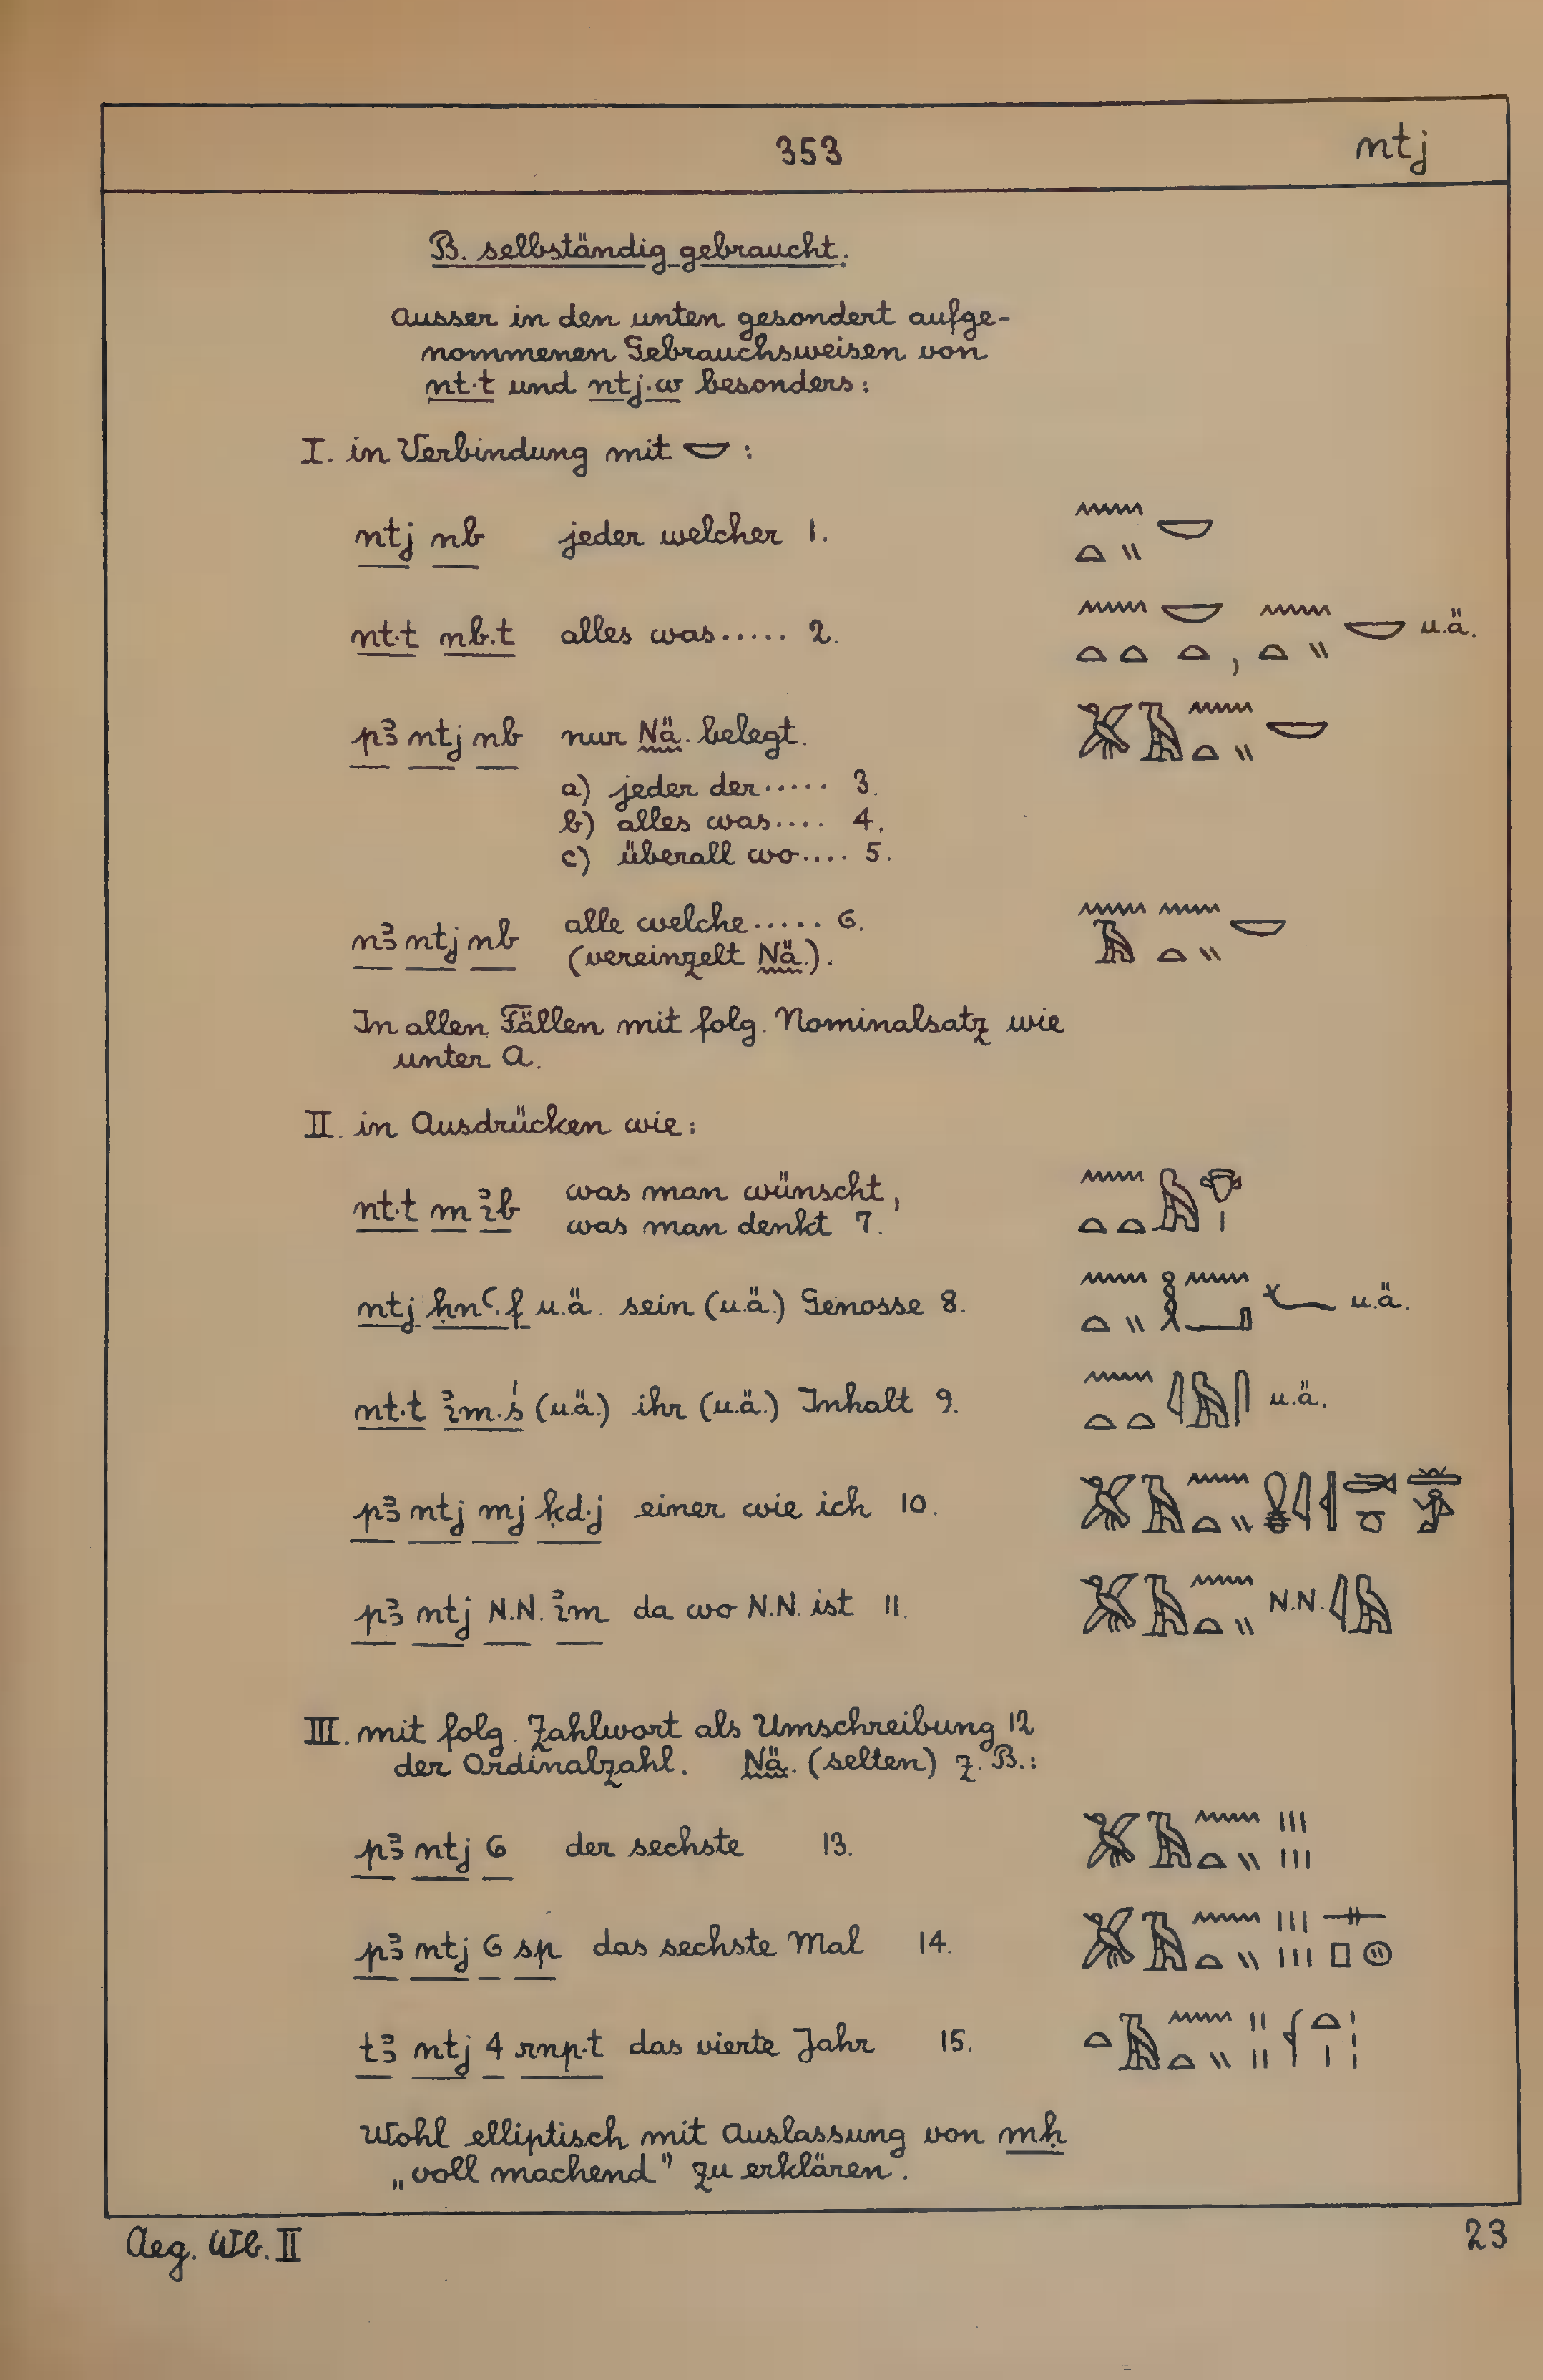 353 ntj
B. selbständig gebraucht.
Ausser in den unten gesondert aufge-
nommenen Gebrauchsweisen von
nt·t und ntj·w besonders:
I. in Verbindung mit 𓎟 :
ntj nb jeder welcher 1. 𓈖𓏏𓏭𓎟
nt·t nb.t alles was..... 2. 𓈖𓏏𓏏𓎟𓏏 , 𓈖𓏏𓏭𓎟 u.ä.
pꜣ ntj nb nur Nä. belegt. 𓅮𓄿𓈖𓏏𓏭𓎟
a) jeder der..... 3.
b) alles was.... 4.
c) überall wo.... 5.
nꜣ ntj nb alle welche..... 6. 𓈖𓄿𓈖𓏏𓏭𓎟
(vereinzelt Nä.).
In allen Fällen mit folg. Nominalsatz wie
unter A.
II. in Ausdrücken wie:
nt·t m ꞽb was man wünscht, 𓈖𓏏𓏏𓅓𓄣𓏤
was man denkt 7.
ntj ḥnꜥ.f u.ä. sein (u.ä.) Genosse 8. 𓈖𓏏𓏭𓎛𓈖𓂝𓆑 u.ä.
nt·t ꞽm·ś (u.ä.) ihr (u.ä.) Inhalt 9. 𓈖𓏏𓏏𓇋𓅓𓋴 u.ä.
pꜣ ntj mj ḳd·j einer wie ich 10.
pꜣ ntj N.N. ꞽm da wo N.N. ist 11. 𓅮𓄿𓈖𓏏𓏭 N.N. 𓇋𓅓
III. mit folg. Zahlwort als Umschreibung 12
der Ordinalzahl. Nä. (selten) z.B.:
pꜣ ntj 6 der sechste 13. 𓅮𓄿𓈖𓏏𓏭𓏿
pꜣ ntj 6 sp das sechste Mal 14. 𓅮𓄿𓈖𓏏𓏭𓏿𓊃𓊪𓊗
tꜣ ntj 4 rnp·t das vierte Jahr 15. 𓏏𓄿𓈖𓏏𓏭𓏽𓆳𓏏𓏤𓏥
Wohl elliptisch mit Auslassung von mḥ
„voll machend" zu erklären.
Aeg. Wb. II 23